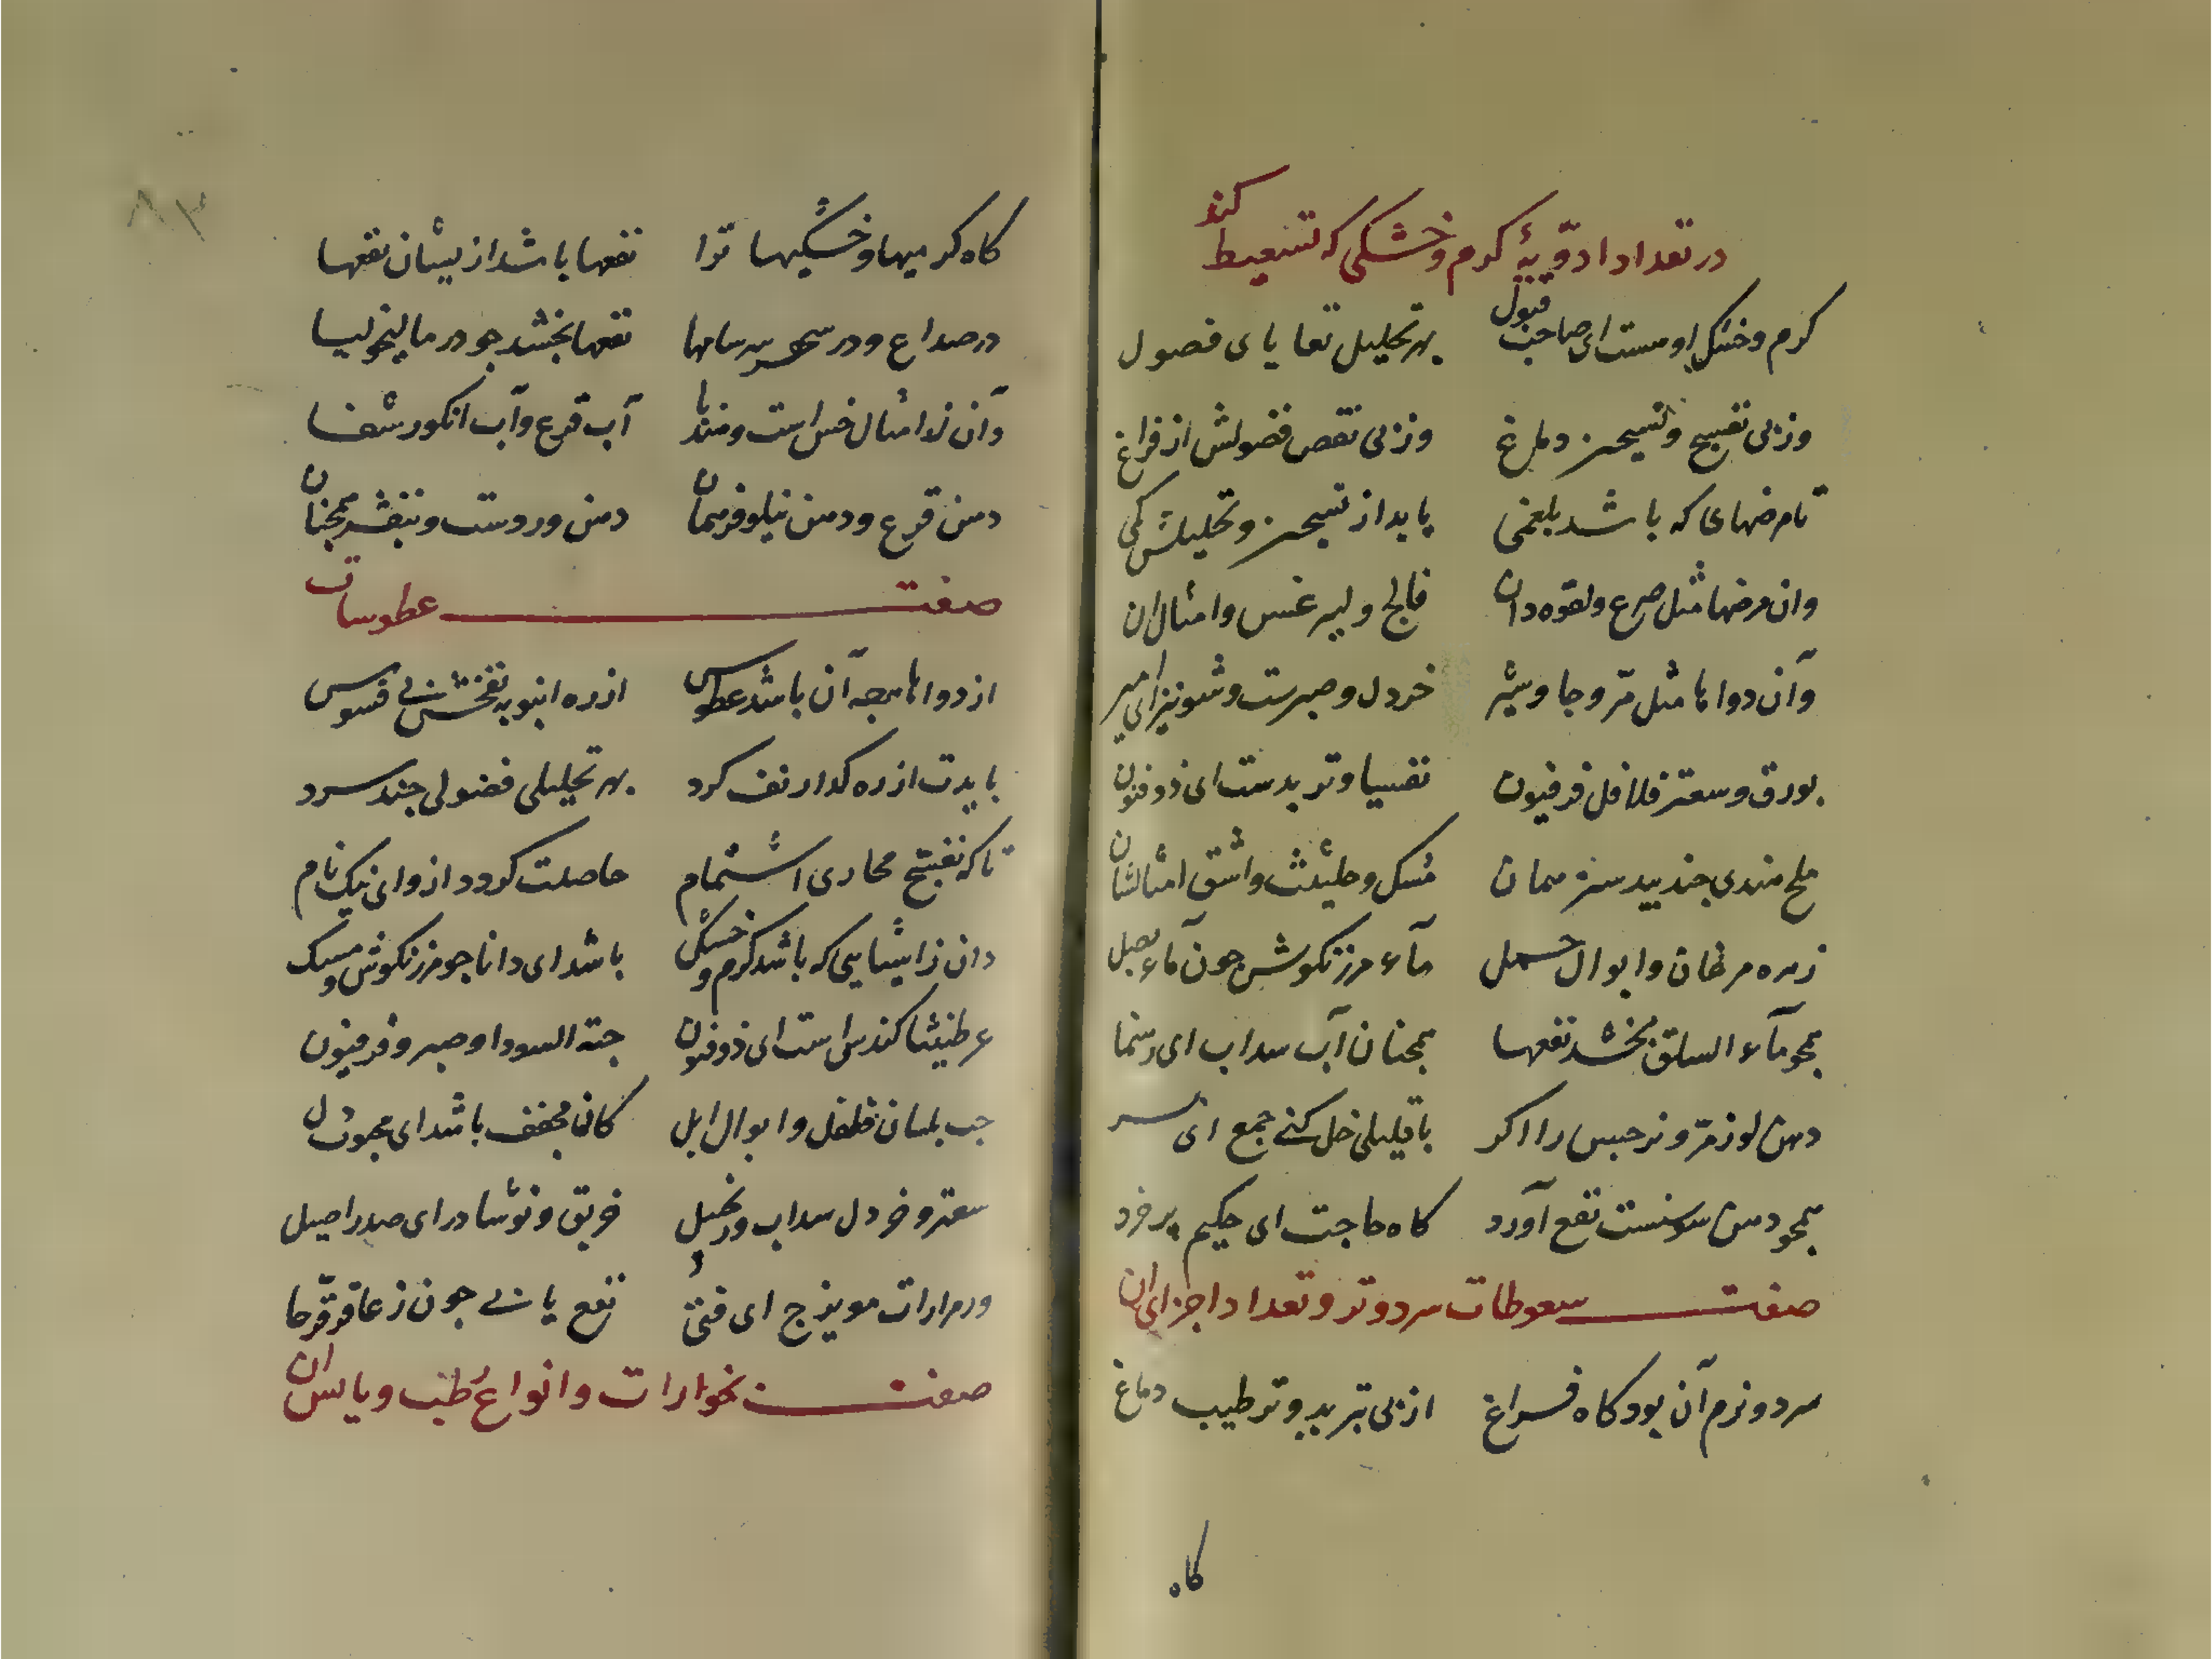 در تعداد ادویهٔ کرم و خشکی که تسعیط کنند
کرم و خشکی او هست ای صاحب قبول بهر تحلیل بقایای فضول
وز پی تفتیح و تسخین دماغ وز پی نقص فضولش از فراغ
تا مرضهای که باشد بلغمی یابد از تسخین و تحلیلش کمی
وان مرضها مثل صرع و لقوه دان فالج و لیرغس و امثال ان
وآن دواها مثل مر و جاوشیر خردل و صبرست و شونیز ای امیر
بورق و سعتر فلافل فرفیون تفسیا و تربدست ای ذوفنون
ملح هندی جند بیدستر همان مشک و حلیثث واشق امثالشان
زهره مرغان و ابوال حمل مآء مرزنکوش جون مآء بصل
همجو مآء السلق بخشد نفعها همجنان آب سداب ای رهنما
دهن لوز مر و نرجس را اکر با قلیلی خل کنی جمع ای پسر
همجو دهن سوسنست نفع آورد کاه حاجت ای حکیم پر خرد
صفت سعوطات سرد و تر و تعداد اجزای ان
سرد و نرم آن بود کاه فراغ از پی تبرید و ترطیب دماغ
کاه
کاه کرمیها و خشکیها ترا نفعها باشد ازیشان نفعها
در صداع و در سهر سرسامها نفعها بخشد جو در مالیخولیا
وآن ز امثال خس است و هندبا آب قرع و آب انکور شفا
دهن قرع و دهن نیلوفر همان دهن وردست و بنفشه همجنان
صفت عطوسات
از دواها هرجه آن باشد عطوس از ره انبوبه نفخش بی فسوس
بایدت از ره کدار نف کرد بهر تحلیلی فضولی جند سرد
تا که تفتیح مجاری اشتمام حاصلت کردد ازو ای نیک نام
دان ز اشیایی که باشد کرم و خشک باشد ای دانا جو مرزنکوش و مسک
عرطنیثا کندس است ای ذوفنون حبة السودا و صبر و فرفیون
حب بلسان فلفل و ابوال ابل کان مجفف باشد ای
سعتر و خردل سداب و زنجبیل خربق و نوشادر ای صدر اصیل
ور مرارات مویزج ای فتی نفع یابی جون ز عاقرقرحا
صفت بخوارات و انواع رطب و یابس ان
۸۳